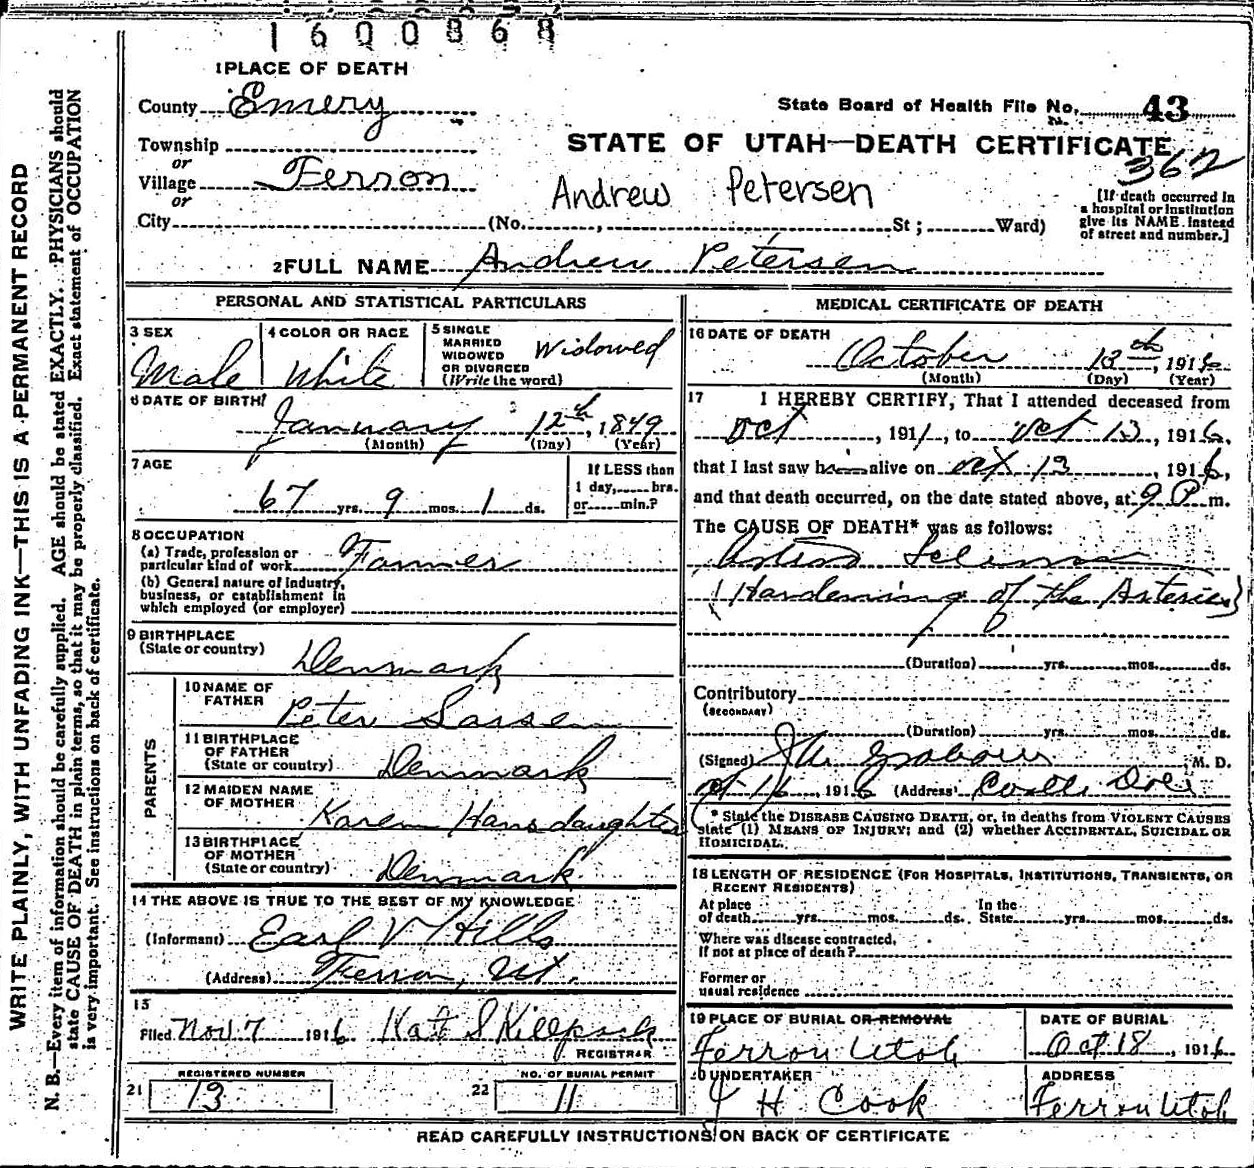 1600868
1 PLACE OF DEATH
County Emery
State Board of Health File No. 43
Township
or
STATE OF UTAH—DEATH CERTIFICATE
362
Village Ferron
or
Andrew Petersen
City (No. , St ; Ward)
[If death occurred in
a hospital or institution
give its NAME instead
of street and number.]
2 FULL NAME Andrew Petersen
PERSONAL AND STATISTICAL PARTICULARS
3 SEX
Male
4 COLOR OR RACE
White
5 SINGLE
MARRIED
WIDOWED
OR DIVORCED
(Write the word)
Widowed
6 DATE OF BIRTH
January 12th, 1849
(Month) (Day) (Year)
7 AGE
67 yrs. 9 mos. 1 ds.
If LESS than
1 day, hrs.
or min.?
8 OCCUPATION
(a) Trade, profession or
particular kind of work Farmer
(b) General nature of industry,
business, or establishment in
which employed (or employer)
9 BIRTHPLACE
(State or country) Denmark
PARENTS
10 NAME OF
FATHER
Peter Larsen
11 BIRTHPLACE
OF FATHER
(State or country) Denmark
12 MAIDEN NAME
OF MOTHER
Karen Hansdaughter
13 BIRTHPLACE
OF MOTHER
(State or country) Denmark
14 THE ABOVE IS TRUE TO THE BEST OF MY KNOWLEDGE
(Informant) Earl V Hills
(Address) Ferron, Ut.
15
Filed Nov 7 1916 Kate S Killpack
REGISTRAR
21 REGISTERED NUMBER
13
22 NO. OF BURIAL PERMIT
11
MEDICAL CERTIFICATE OF DEATH
16 DATE OF DEATH
October 13th, 1916
(Month) (Day) (Year)
17 I HEREBY CERTIFY, That I attended deceased from
Oct , 191 , to Oct 13, 1916,
that I last saw h alive on Oct 13, 1916,
and that death occurred, on the date stated above, at 9 P m.
The CAUSE OF DEATH* was as follows:
(Hardening of the Arteries)
(Duration) yrs. mos. ds.
Contributory
(SECONDARY)
(Duration) yrs. mos. ds.
(Signed) M. D.
16, 1916 (Address) Castle Dale
* State the DISEASE CAUSING DEATH, or, in deaths from VIOLENT CAUSES
state (1) MEANS OF INJURY; and (2) whether ACCIDENTAL, SUICIDAL OR
HOMICIDAL.
18 LENGTH OF RESIDENCE (FOR HOSPITALS, INSTITUTIONS, TRANSIENTS, OR
RECENT RESIDENTS)
At place
of death yrs. mos. ds.
In the
State yrs. mos. ds.
Where was disease contracted,
if not at place of death?
Former or
usual residence
19 PLACE OF BURIAL OR REMOVAL
Ferron Utah
DATE OF BURIAL
Oct 18, 1916
20 UNDERTAKER
J H Cook
ADDRESS
Ferron Utah
READ CAREFULLY INSTRUCTIONS ON BACK OF CERTIFICATE
WRITE PLAINLY, WITH UNFADING INK—THIS IS A PERMANENT RECORD
N. B.—Every item of information should be carefully supplied. AGE should be stated EXACTLY. PHYSICIANS should
state CAUSE OF DEATH in plain terms, so that it may be properly classified. Exact statement of OCCUPATION
is very important. See instructions on back of certificate.